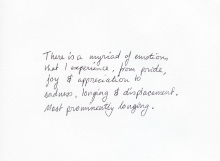 There is a myriad of emotions
that I experience, from pride,
joy & appreciation to
sadness, longing & displacement.
Most prominently longing.